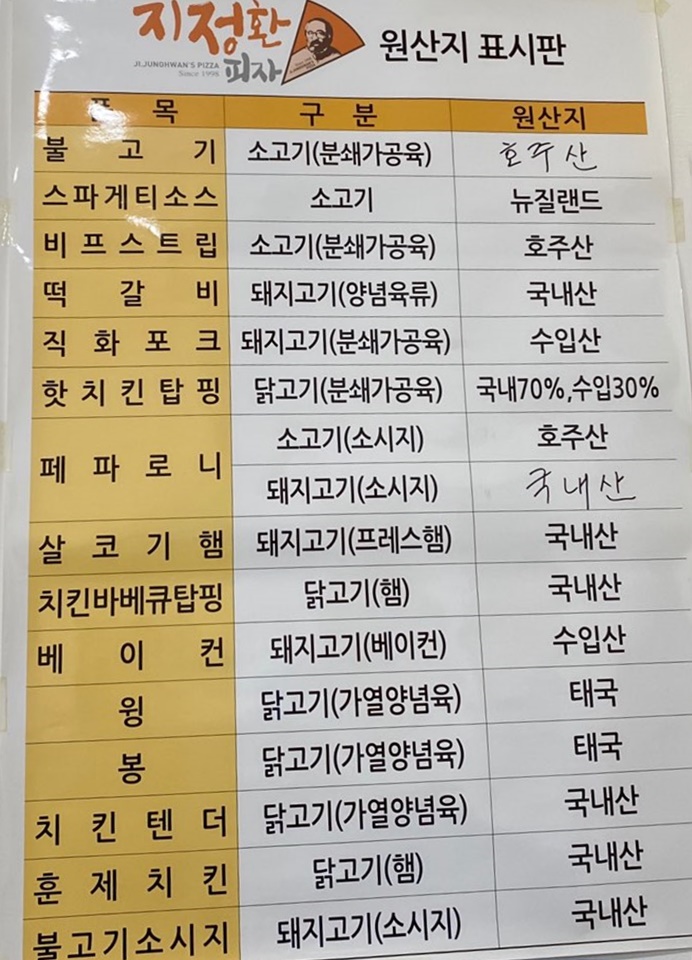 지정환 피자
JI.JUNGHWAN'S PIZZA
Since 1998
원산지 표시판
품 목 구 분 원산지
불 고 기 소고기(분쇄가공육) 호주산
스파게티소스 소고기 뉴질랜드
비프스트립 소고기(분쇄가공육) 호주산
떡 갈 비 돼지고기(양념육류) 국내산
직 화 포 크 돼지고기(분쇄가공육) 수입산
핫치킨탑핑 닭고기(분쇄가공육) 국내70%,수입30%
페 파 로 니 소고기(소시지) 호주산
돼지고기(소시지) 국내산
살 코 기 햄 돼지고기(프레스햄) 국내산
치킨바베큐탑핑 닭고기(햄) 국내산
베 이 컨 돼지고기(베이컨) 수입산
윙 닭고기(가열양념육) 태국
봉 닭고기(가열양념육) 태국
치 킨 텐 더 닭고기(가열양념육) 국내산
훈 제 치 킨 닭고기(햄) 국내산
불고기소시지 돼지고기(소시지) 국내산